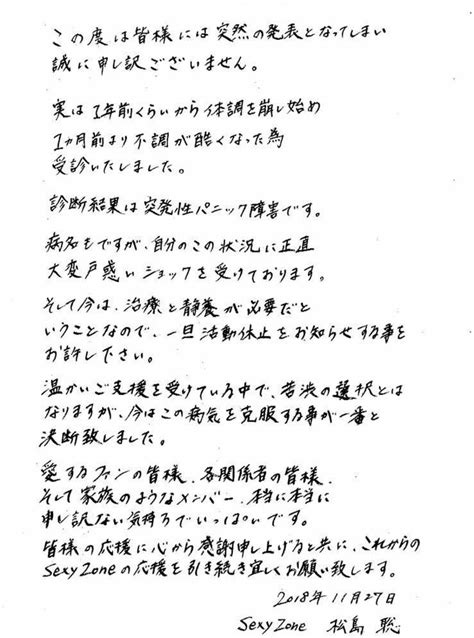 この度は皆様には突然の発表となってしまい
誠に申し訳ございません。
実は1年前くらいから体調を崩し始め
1ヵ月前より不調が酷くなった為
受診いたしました。
診断結果は突発性パニック障害です。
病名もですが、自分のこの状況に正直
大変戸惑いショックを受けております。
そして今は、治療と静養が必要だと
いうことなので、一旦活動休止をお知らせする事を
お許し下さい。
温かいご支援を受けている中で、苦渋の選択とは
なりますが、今はこの病気を克服する事が一番と
決断致しました。
愛するファンの皆様、各関係者の皆様、
そして家族のようなメンバー、本当に本当に
申し訳ない気持ちでいっぱいです。
皆様の応援に心から感謝申し上げると共に、これからの
SexyZoneの応援を引き続き宜しくお願い致します。
2018年11月27日
SexyZone 松島 聡